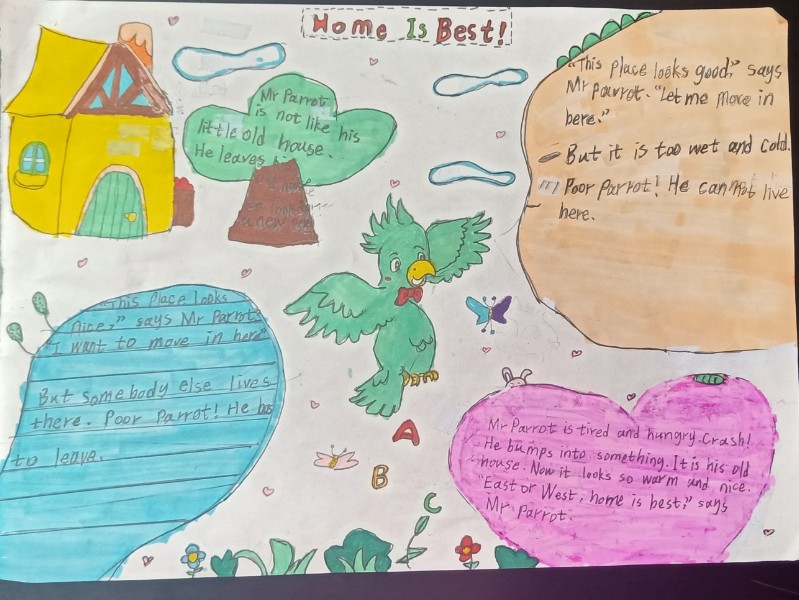 Home Is Best!
Mr Parrot
is not like his
little old house.
He leaves
a new one
"This Place looks good," says
Mr parrot. "Let me move in
here."
But it is too wet and cold.
Poor Parrot! He cannot live
here.
"This Place looks
nice," says Mr Parrot.
"I want to move in here"
But somebody else lives
there. Poor Parrot! He has
to leave.
Mr Parrot is tired and hungry. Crash!
He bumps into something. It is his old
house. Now it looks so warm and nice.
"East or West, home is best," says
Mr Parrot.
A
B
C